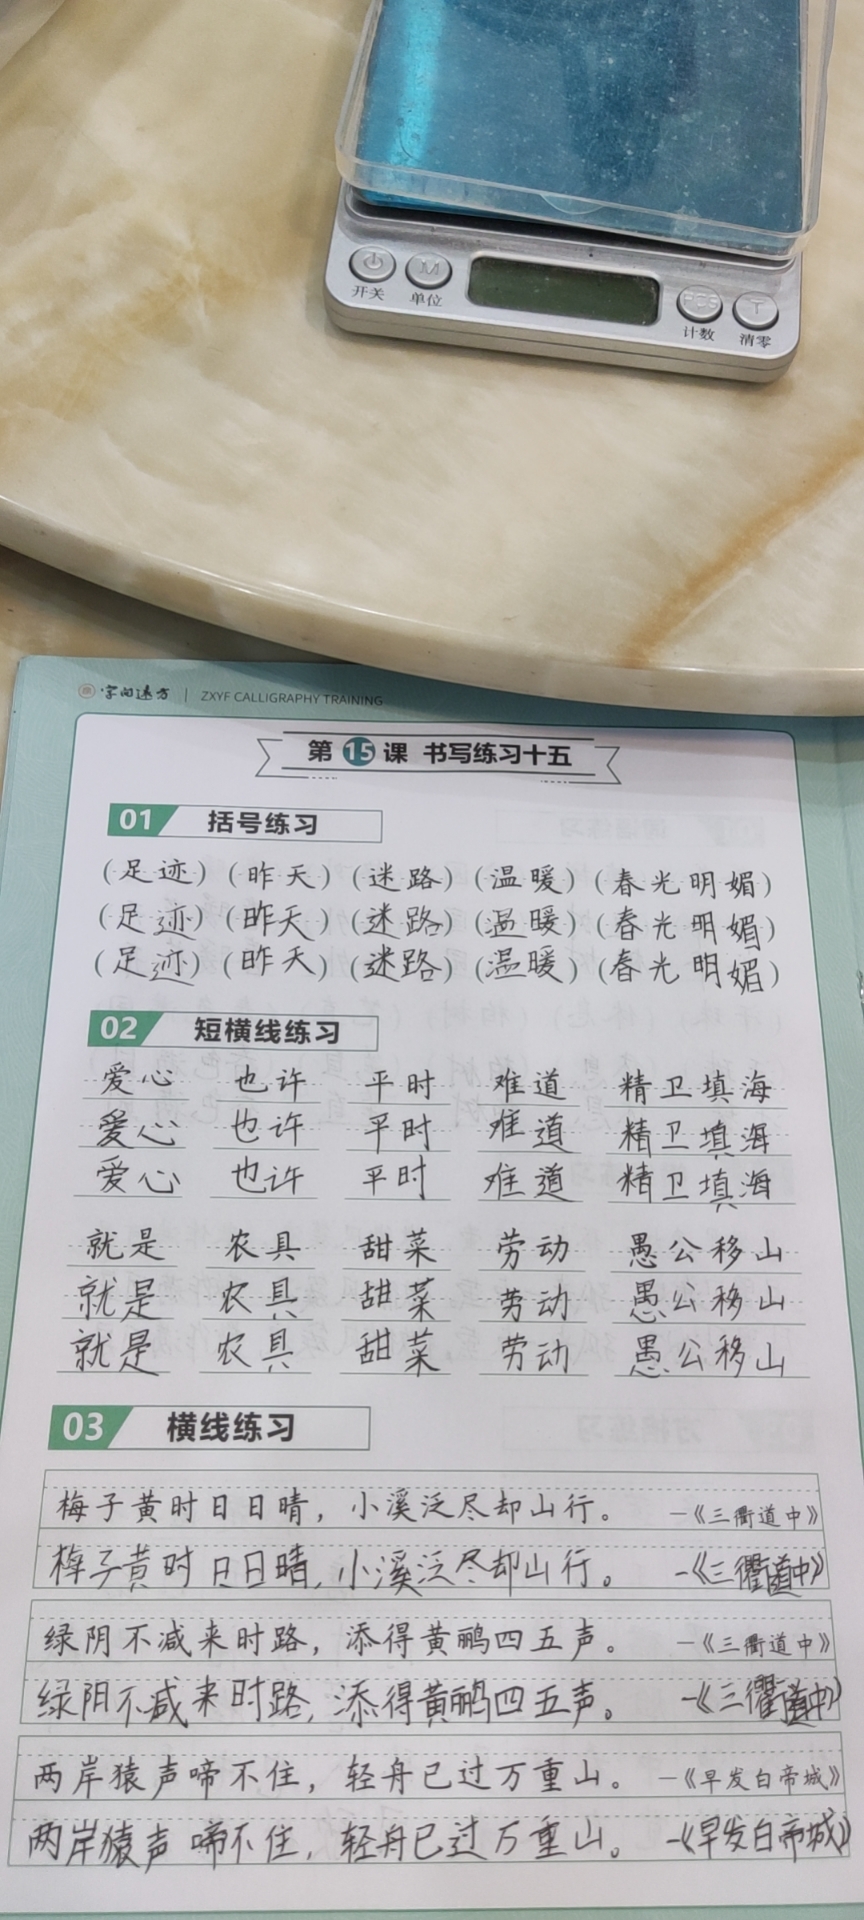 开关 单位 计数 清零
字向远方 | ZXYF CALLIGRAPHY TRAINING
第15课 书写练习十五
01 括号练习
(足迹) (昨天) (迷路) (温暖) (春光明媚)
(足迹) (昨天) (迷路) (温暖) (春光明媚)
(足迹) (昨天) (迷路) (温暖) (春光明媚)
02 短横线练习
爱心 也许 平时 难道 精卫填海
爱心 也许 平时 难道 精卫填海
爱心 也许 平时 难道 精卫填海
就是 农具 甜菜 劳动 愚公移山
就是 农具 甜菜 劳动 愚公移山
就是 农具 甜菜 劳动 愚公移山
03 横线练习
梅子黄时日日晴，小溪泛尽却山行。 —《三衢道中》
梅子黄时日日晴，小溪泛尽却山行。 —《三衢道中》
绿阴不减来时路，添得黄鹂四五声。 —《三衢道中》
绿阴不减来时路，添得黄鹂四五声。 —《三衢道中》
两岸猿声啼不住，轻舟已过万重山。 —《早发白帝城》
两岸猿声啼不住，轻舟已过万重山。 —《早发白帝城》